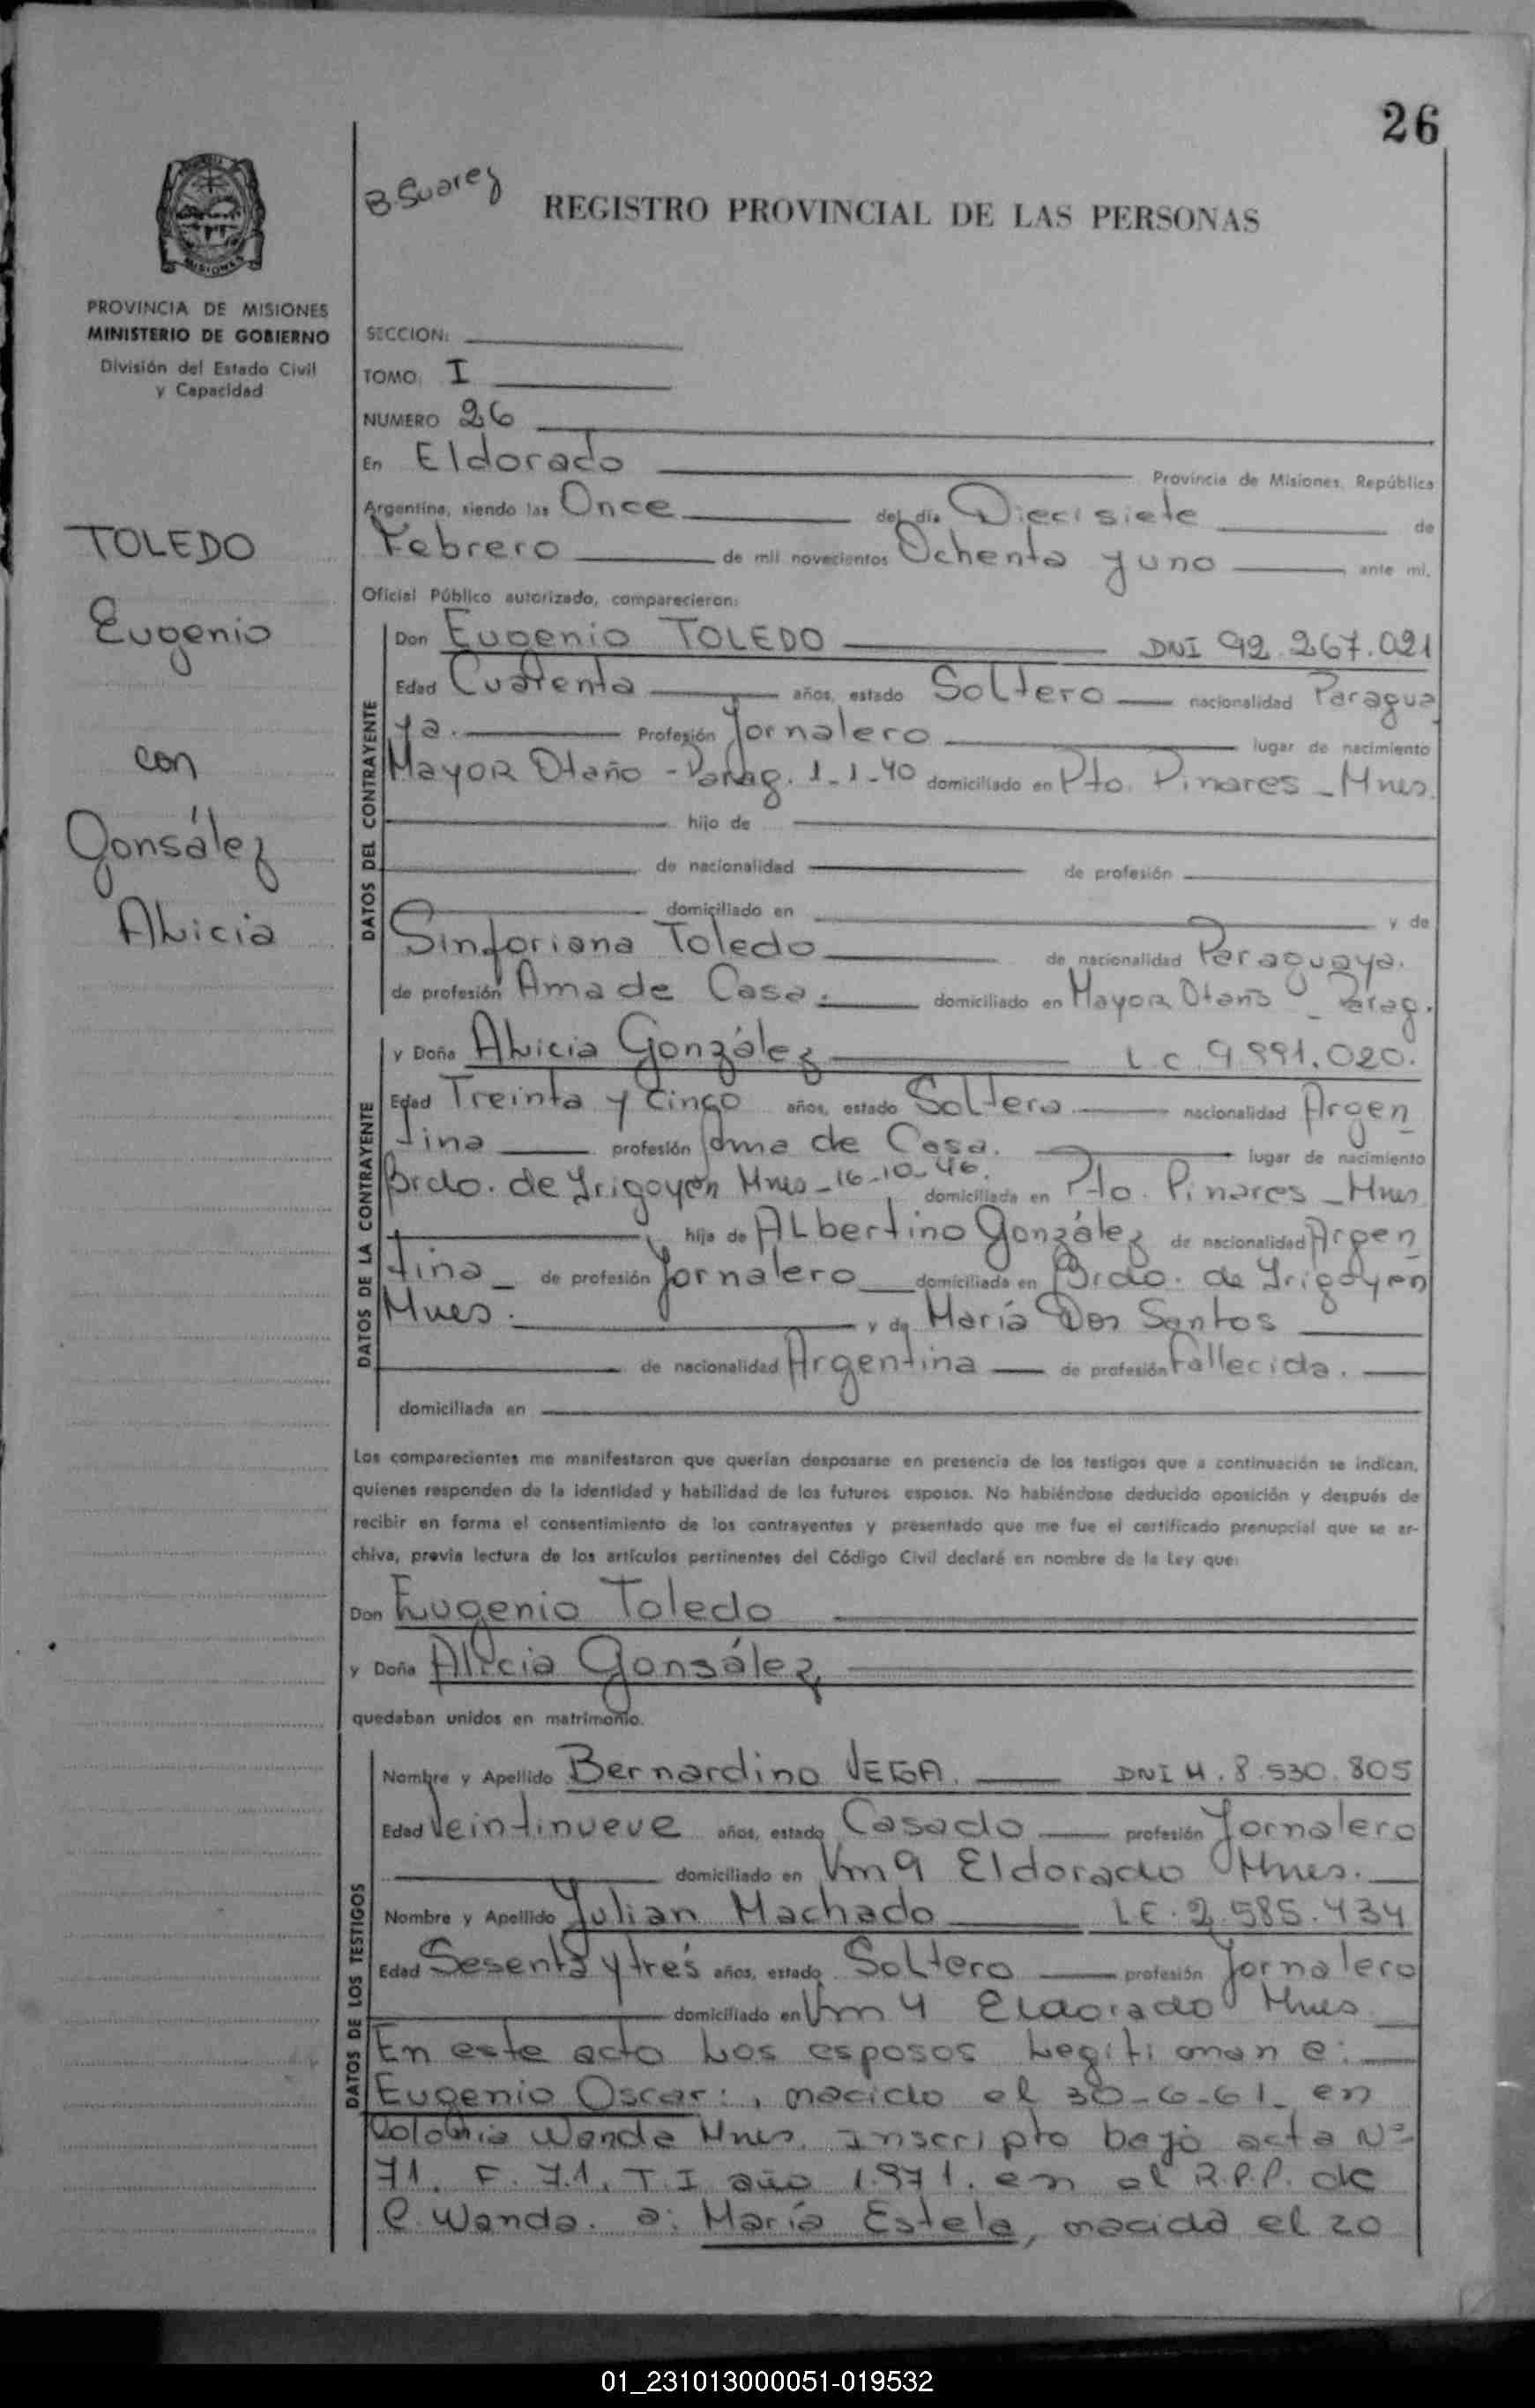 26
B. Suarez
REGISTRO PROVINCIAL DE LAS PERSONAS
MISIONES
PROVINCIA DE MISIONES
MINISTERIO DE GOBIERNO
División del Estado Civil
y Capacidad
TOLEDO
Eugenio
con
Gonsález
Alicia
SECCION:
TOMO: I
NUMERO 26
En Eldorado Provincia de Misiones, República
Argentina, siendo las Once del día Diecisiete de
Febrero de mil novecientos Ochenta y uno ante mi,
Oficial Público autorizado, comparecieron:
DATOS DEL CONTRAYENTE
Don Eugenio TOLEDO DNI 92.267.021
Edad Cuarenta años, estado Soltero nacionalidad Paragua
ya. Profesión Jornalero lugar de nacimiento
Mayor Otaño - Parag. 1-1-40 domiciliado en Pto. Pinares - Mnes.
hijo de
de nacionalidad de profesión
domiciliado en y de
Sinforiana Toledo de nacionalidad Paraguaya.
de profesión Ama de Casa. domiciliado en Mayor Otaño - Parag.
DATOS DE LA CONTRAYENTE
y Doña Alicia González L.C. 9.991.020.
Edad Treinta y Cinco años, estado Soltera nacionalidad Argen
tina profesión Ama de Casa. lugar de nacimiento
Brdo. de Yrigoyen Mnes - 16-10-46. domiciliada en Pto. Pinares - Mnes
hija de Albertino González de nacionalidad Argen
tina - de profesión Jornalero domiciliado en Brdo. de Yrigoyen
Mnes. y de María Dos Santos
de nacionalidad Argentina de profesión Fallecida.
domiciliada en
Los comparecientes me manifestaron que querían desposarse en presencia de los testigos que a continuación se indican,
quienes responden de la identidad y habilidad de los futuros esposos. No habiéndose deducido oposición y después de
recibir en forma el consentimiento de los contrayentes y presentado que me fue el certificado prenupcial que se ar-
chiva, previa lectura de los artículos pertinentes del Código Civil declaré en nombre de la Ley que:
Don Eugenio Toledo
y Doña Alicia Gonsález
quedaban unidos en matrimonio.
DATOS DE LOS TESTIGOS
Nombre y Apellido Bernardino VEGA. DNI M. 8.530.805
Edad Veintinueve años, estado Casado profesión Jornalero
domiciliado en Km 9 Eldorado Mnes.
Nombre y Apellido Julian Machado LE. 2.585.434
Edad Sesenta y tres años, estado Soltero profesión Jornalero
domiciliado en Km 4 Eldorado Mnes
En este acto los esposos legitiman a:
Eugenio Oscar:, nacido el 30-6-61 en
Colonia Wanda Mnes. Inscripto bajo acta Nº
71. F. 71. T. I año 1.971. en el R.P.P. de
C. Wanda. a: María Estela, nacida el 20
01_231013000051-019532